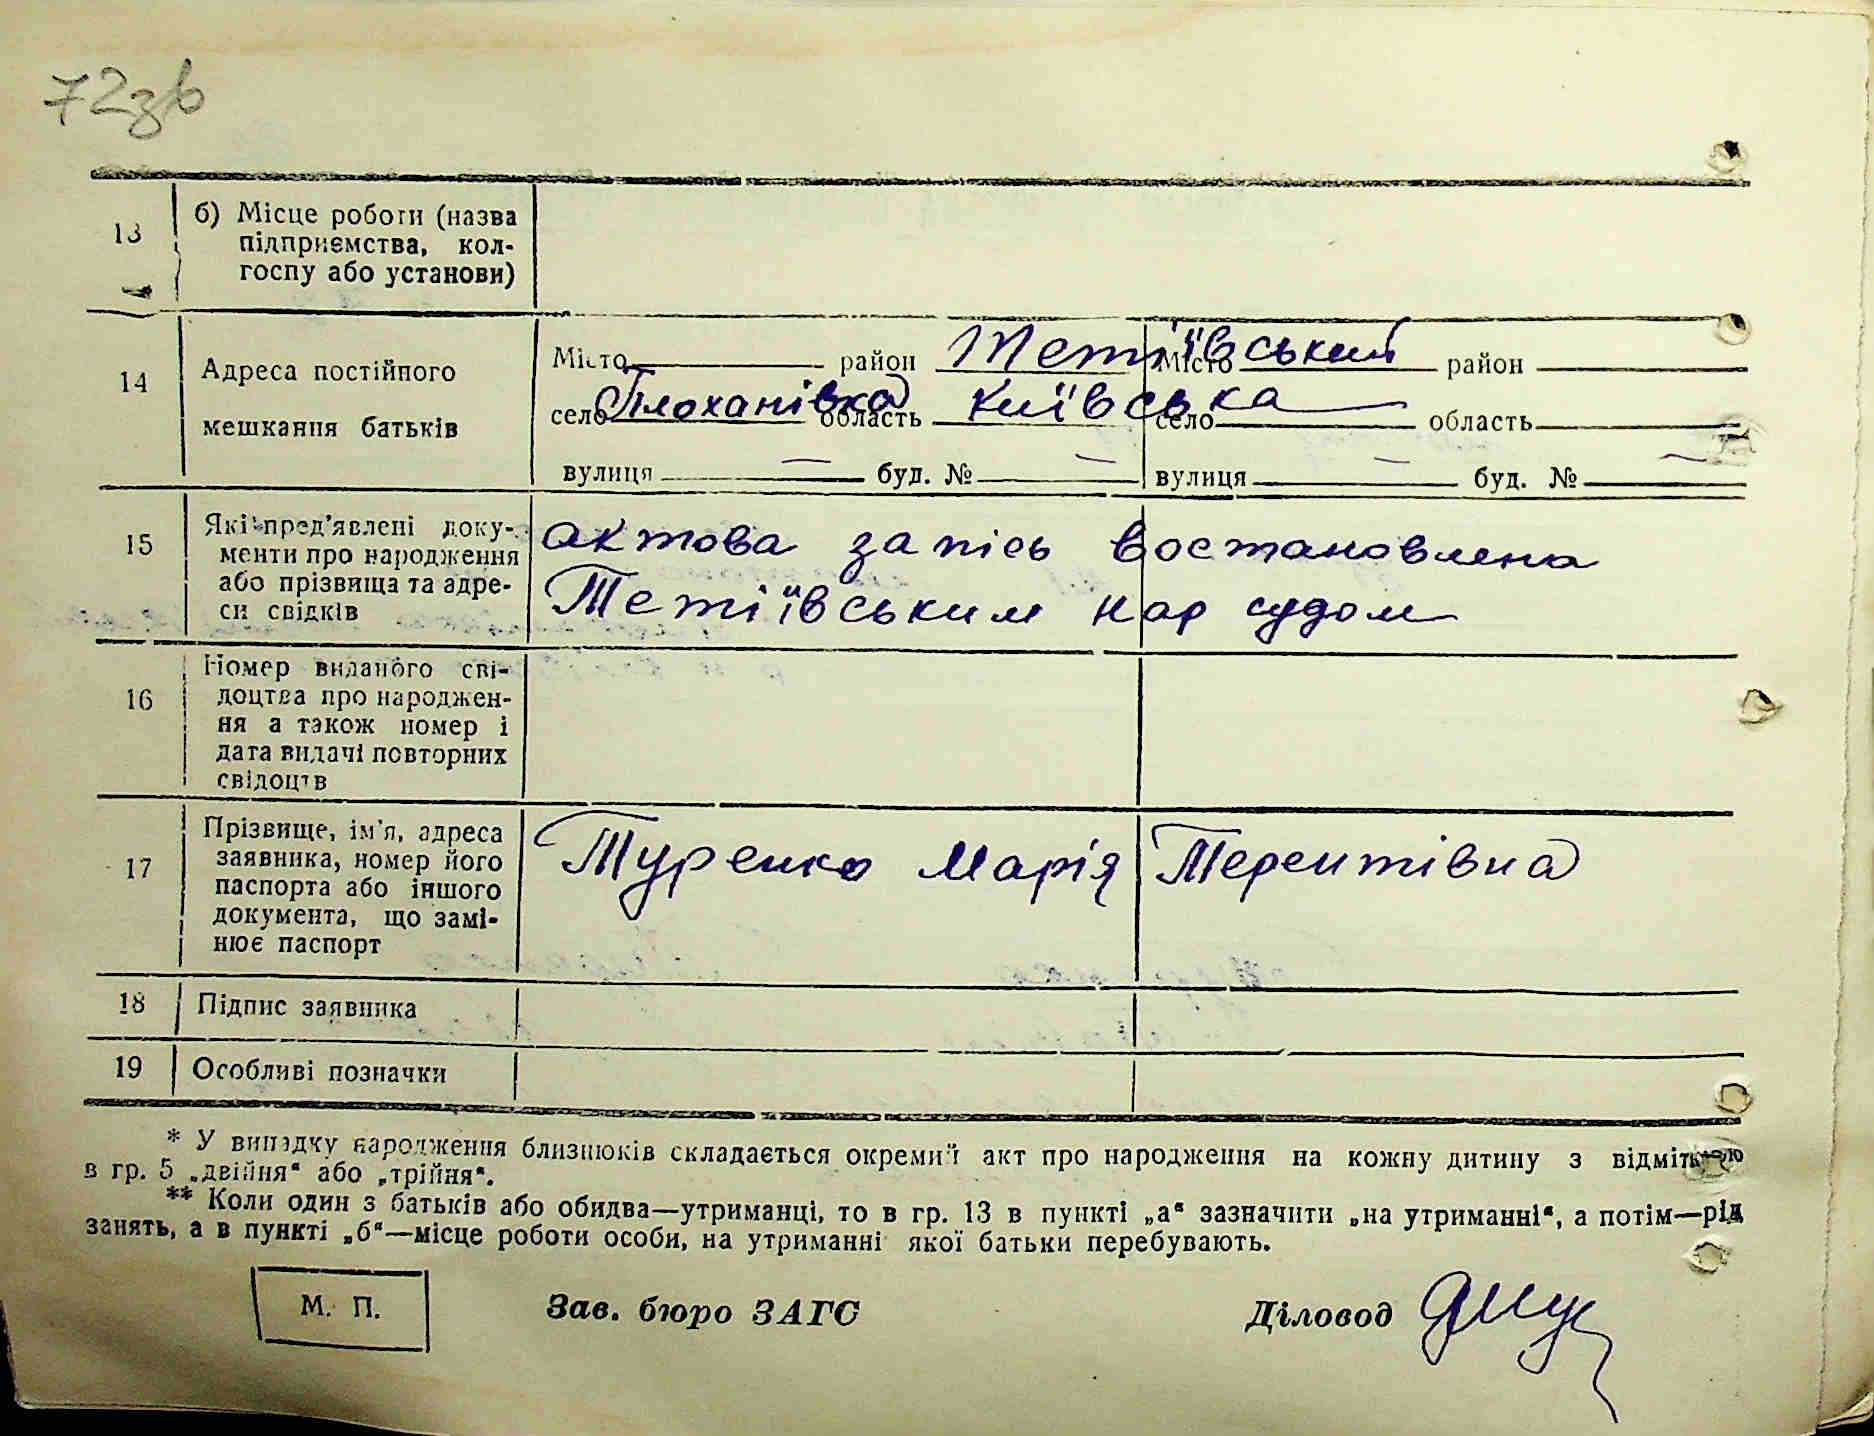 72зв
13
б) Місце роботи (назва
підприємства, кол-
госпу або установи)
14
Адреса постійного
мешкання батьків
Місто район Тетіївський Місто район
село Плоханівка область Київська село область
вулиця — буд. № — вулиця — буд. № —
15
Які пред'явлені доку-
менти про народження
або прізвища та адре-
си свідків
актова запісь востановлена
Тетіївським нар судом
16
Номер виданого сві-
доцтва про народжен-
ня а також номер і
дата видачі повторних
свідоцтв
17
Прізвище, ім'я, адреса
заявника, номер його
паспорта або іншого
документа, що замі-
нює паспорт
Туренко Марія Терентівна
18 Підпис заявника
19 Особливі позначки
* У випадку народження близнюків складається окремий акт про народження на кожну дитину з відміткою
в гр. 5 „двійня“ або „трійня“.
** Коли один з батьків або обидва—утриманці, то в гр. 13 в пункті „а“ зазначити „на утриманні“, а потім—рід
занять, а в пункті „б“—місце роботи особи, на утриманні якої батьки перебувають.
М. П. Зав. бюро ЗАГС Діловод